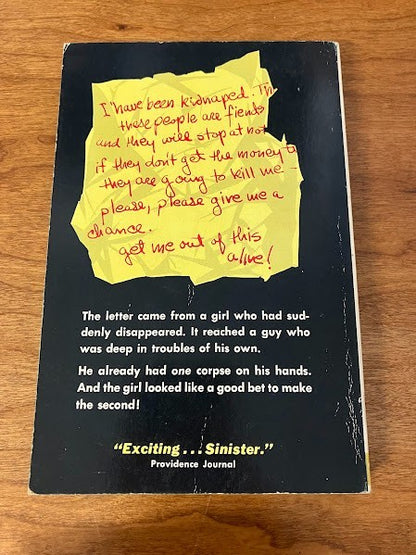 I have been kidnaped. Th
these people are fiends
and they will stop at not
if they don't get the money
they are going to kill me
please, please give me a
chance.
get me out of this
alive!
The letter came from a girl who had sud-
denly disappeared. It reached a guy who
was deep in troubles of his own.
He already had one corpse on his hands.
And the girl looked like a good bet to make
the second!
"Exciting... Sinister."
Providence Journal